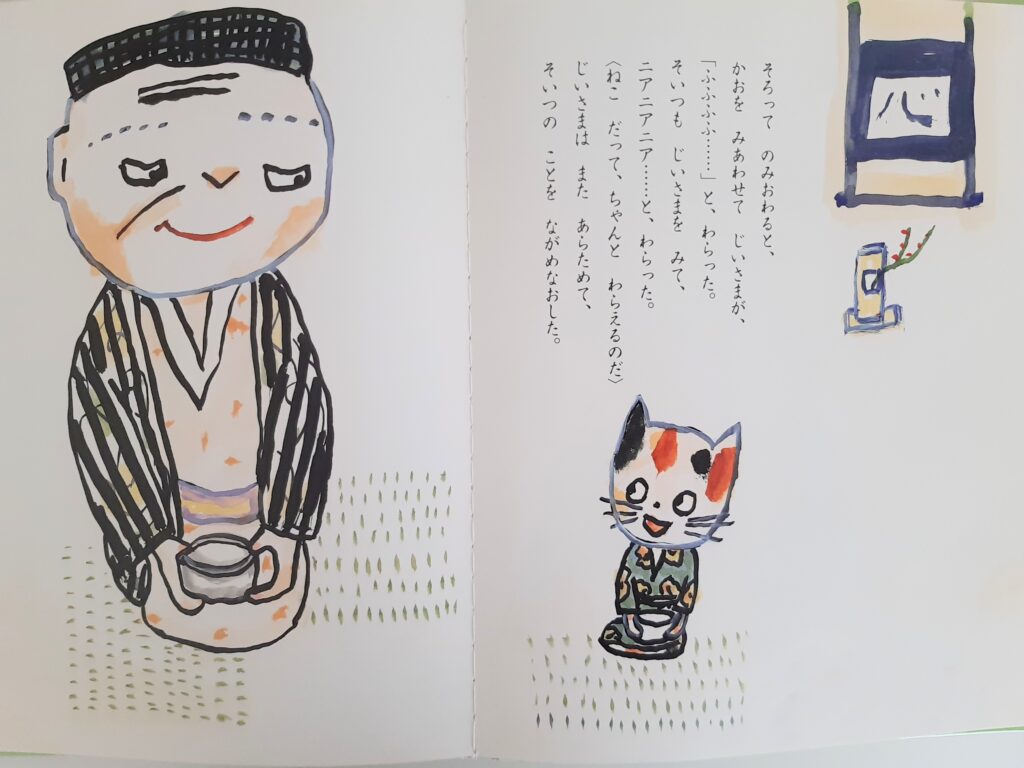 心
そろって のみおわると、
かおを みあわせて じいさまが、
「ふふふふ………」と、わらった。
そいつも じいさまを みて、
ニアニアニア……と、わらった。
〈ねこ だって、ちゃんと わらえるのだ〉
じいさまは また あらためて、
そいつの ことを ながめなおした。